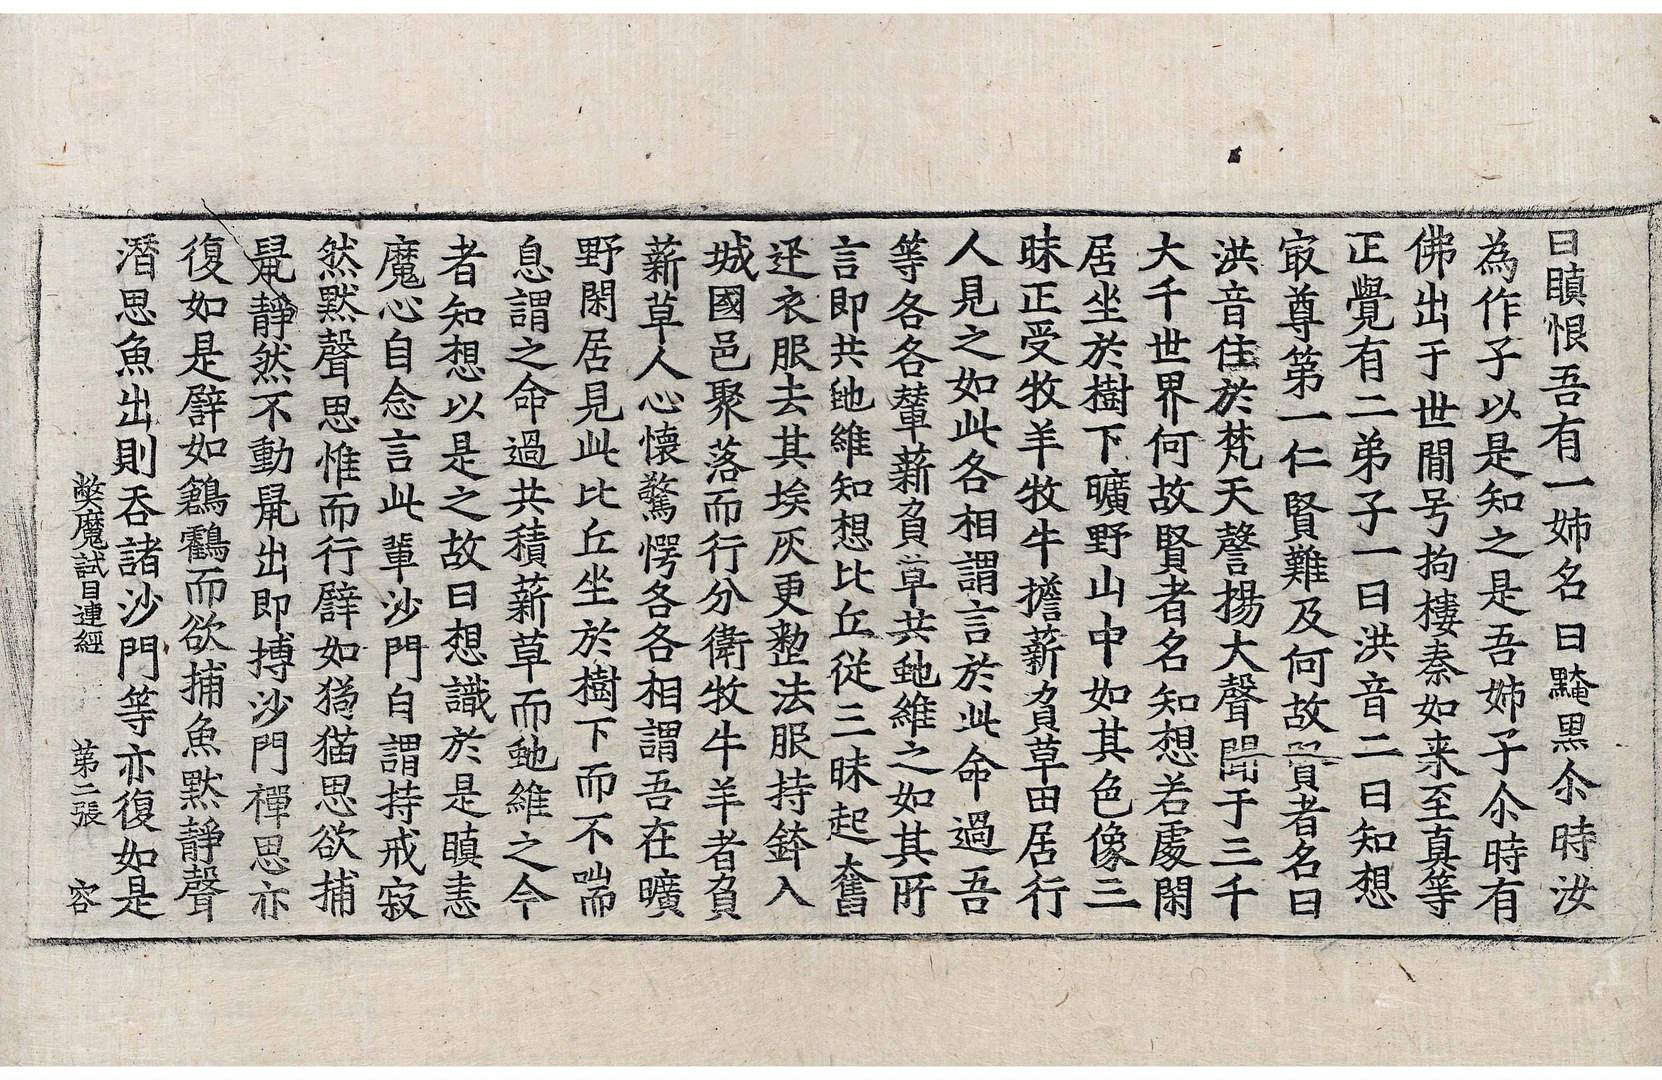 曰瞋恨吾有一姉名曰黤黒尒時汝
為作子以是知之是吾姉子尒時有
佛出于世閒号拘樓秦如来至真等
正覺有二弟子一曰洪音二曰知想
㝡尊第一仁賢難及何故賢者名曰
洪音住於梵天謦揚大聲聞于三千
大千世界何故賢者名知想若處閑
居坐於樹下曠野山中如其色像三
昧正受牧羊牧牛擔薪負草田居行
人見之如此各相謂言於此命過吾
等各各輦薪負草共虵維之如其所
言即共虵維知想比丘従三昧起奮
迅衣服去其埃灰更整法服持鉢入
城國邑聚落而行分衛牧牛羊者負
薪草人心懷驚愕各各相謂吾在曠
野閑居見此比丘坐於樹下而不喘
息謂之命過共積薪草而虵維之今
者知想以是之故曰想識於是瞋恚
魔心自念言此輩沙門自謂持戒寂
然黙聲思惟而行譬如猫思欲捕
鼠靜然不動鼠出即搏沙門禪思亦
復如是譬如鶴而欲捕魚黙靜聲
潛思魚出則吞諸沙門等亦復如是
弊魔試目連經 第二張 容